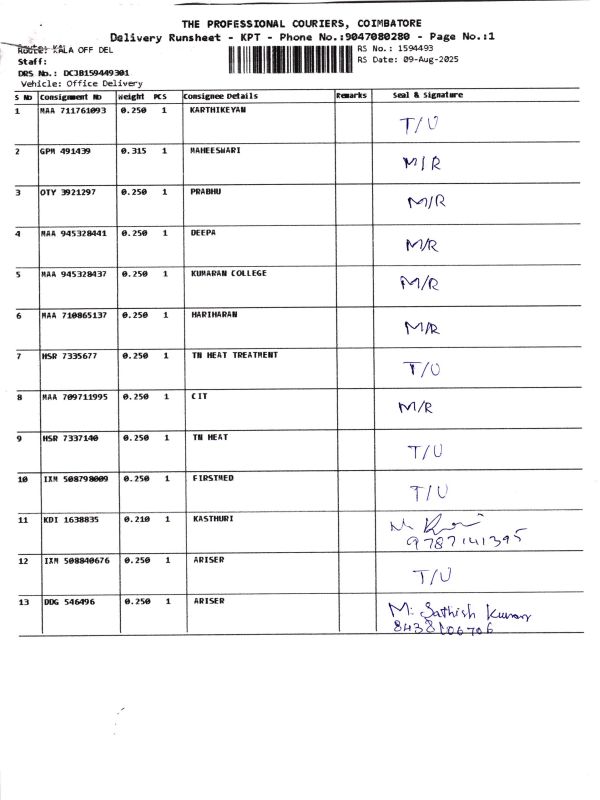 THE PROFESSIONAL COURIERS, COIMBATORE
Delivery Runsheet - KPT - Phone No.:9047080280 - Page No.:1
Route: KALA OFF DEL
RS No.: 1594493
Staff:
RS Date: 09-Aug-2025
DRS No.: DCJB159449301
Vehicle: Office Delivery
S No Consignment No Weight PCS Consignee Details Remarks Seal & Signature
1 MAA 711761093 0.250 1 KARTHIKEYAN T/U
2 GPM 491439 0.315 1 MAHEESWARI M/R
3 OTY 3921297 0.250 1 PRABHU M/R
4 MAA 945328441 0.250 1 DEEPA M/R
5 MAA 945328437 0.250 1 KUMARAN COLLEGE M/R
6 MAA 710865137 0.250 1 HARIHARAN M/R
7 HSR 7335677 0.250 1 TN HEAT TREATMENT T/U
8 MAA 709711995 0.250 1 CIT M/R
9 HSR 7337140 0.250 1 TN HEAT T/U
10 IXM 508798009 0.250 1 FIRSTMED T/U
11 KDI 1638835 0.210 1 KASTHURI
9787141395
12 IXM 508840676 0.250 1 ARISER T/U
13 DDG 546496 0.250 1 ARISER M. Sathish Kumar
8438106706